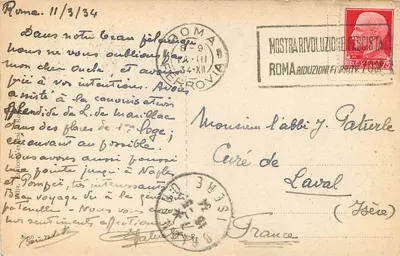 Roma 11/3/34
Dans notre beau pélerinage
nous ne vous oublions pas
mon cher oncle, et avons
prié à vos intentions. Avons
assisté à la canonisation
splendide de L. de Marillac
dans des places de 1ère loge;
émouvant au possible.
Nous avons aussi poussé
une pointe jusqu'à Naples
et Pompéi, très intéressant
Beau voyage
Nous vous
nos sentiments affectueux
ROMA
FERROVIA
8-9
34-XII
MOSTRA RIVOLUZIONE FASCISTA
ROMA RIDUZIONI FERROV. 70%
75
Monsieur l'abbé J. Paturle
Curé de
Laval
(Isère)
France
ISERE